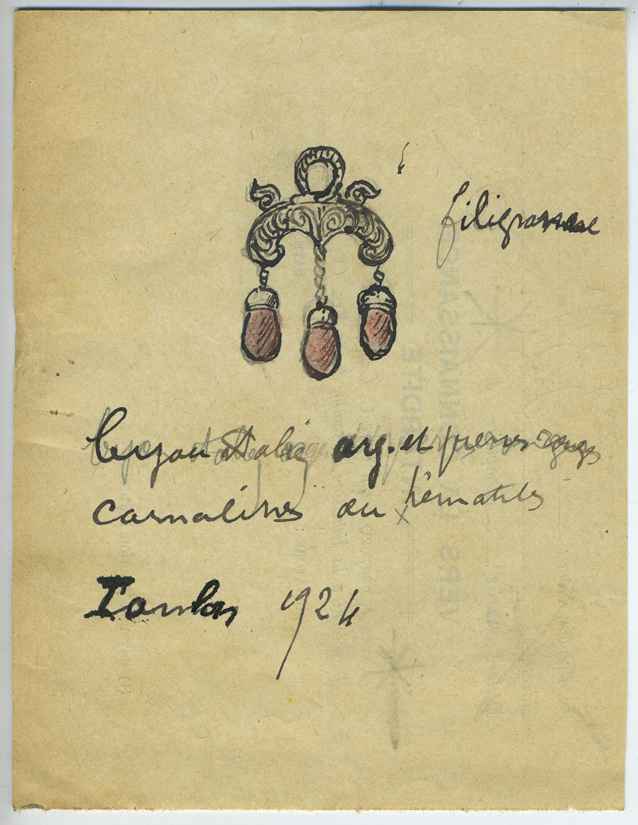 filigranne
bijou Italie arg. et pierres rouges
carnalines ou hématites
Toulon 1924